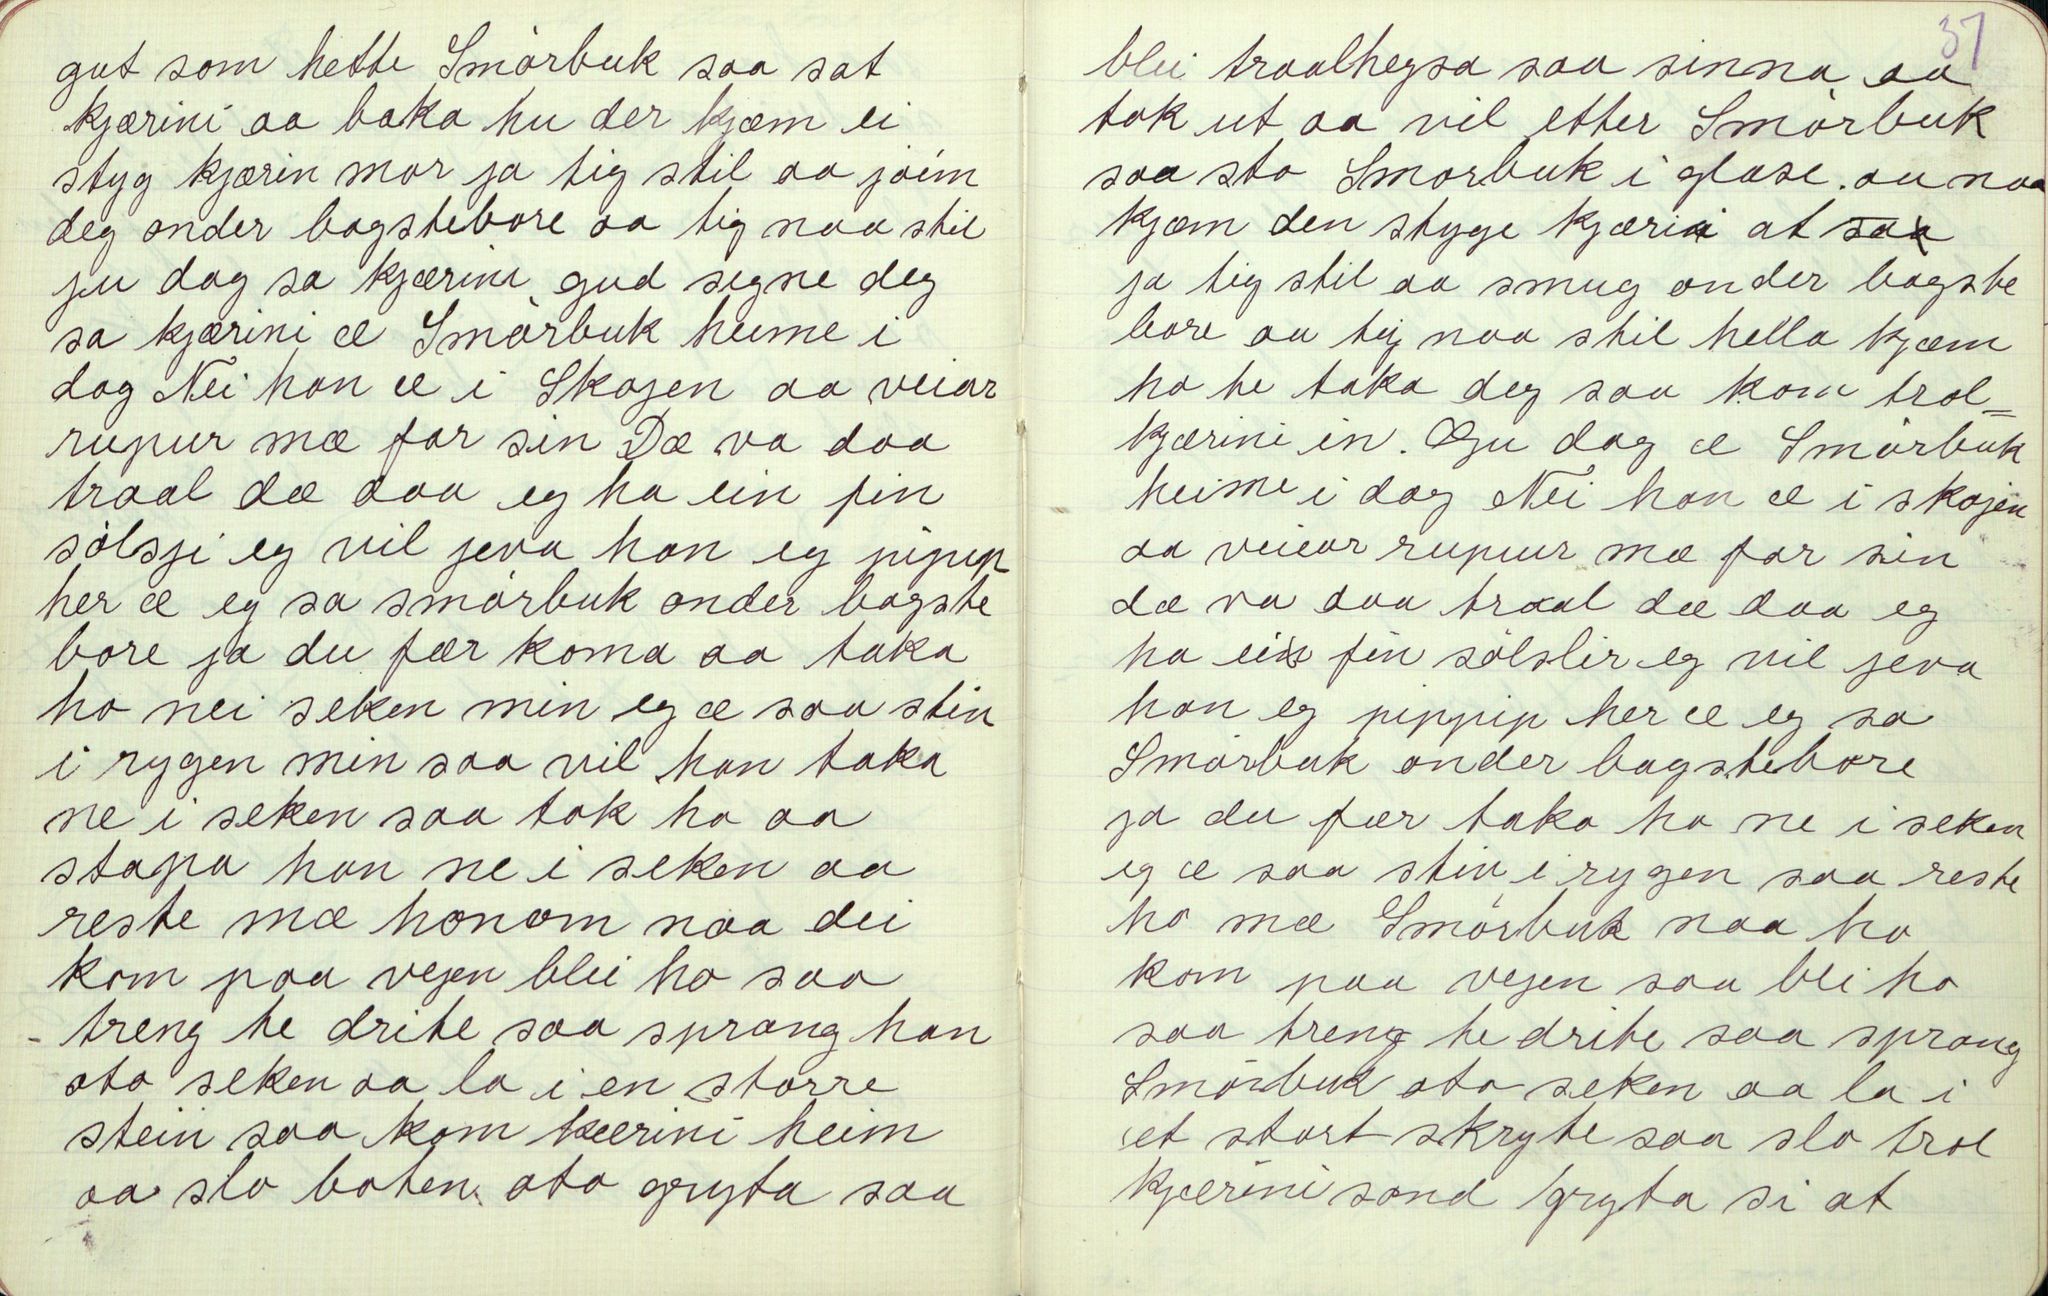 gut som hette Smörbuk saa sat
kjærini aa baka hu der kjæm ei
styg kjærin mor ja tig stil aa jöim
deg onder bagstebore aa tig naa stil
ju dag sa kjærini gud segne deg
sa kjærini æ Smörbuk heime i
dag Nei han æ i Skogen aa veiar
rupur mæ far sin Dæ va daa
traal dæ daa eg ha ein fin
sölsji eg vil jeva han eg pippip
her æ eg sa smörbuk onder bagste
bore ja du fær koma aa taka
ho nei seken min eg æ saa stin
i rygen min saa vil han taka
ne i seken saa tok ho aa
stapa han ne i seken aa
reste mæ honom naa dei
kom paa vejen blei ho saa
treng te drite saa sprang han
oto seken aa la i en storre
stein saa kom kærini heim
aa slo boten oto gryta saa
37
blei traalhegsa saa sinna aa
tok ut aa vil etter Smörbuk
saa sto Smörbuk i glase. au naa
kjæm den styge kjærini at saa
ja tig stil aa smug onder bagste
bore aa tig naa stil hella kjæm
ho te taka deg saa kom trol=
kjærini in. Gu dag æ Smörbuk
heime i dag Nei han æ i skojen
aa veiear rupur mæ far sin
dæ va daa traal dæ daa eg
ha ein fin sölslir eg vil jeva
han eg pippip her æ eg sa
Smörbuk onder bagstebore
ja du fær taka ho ne i seken
eg æ saa stin i rygen saa reste
ho mæ Smörbuk naa ho
kom paa vejen saa blei ho
saa treng te drite saa sprang
Smörbuk oto seken aa la i
et stort skryte saa slo trol
kjærini sond gryta si at